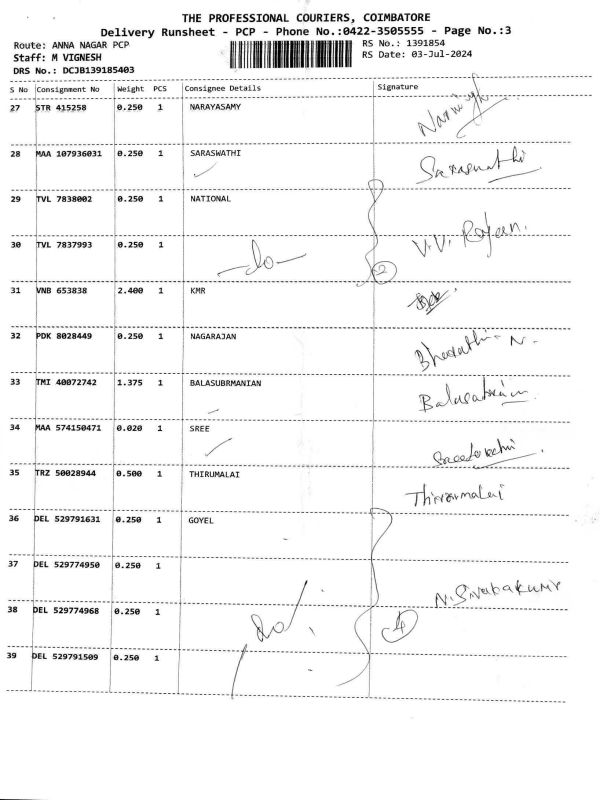 THE PROFESSIONAL COURIERS, COIMBATORE
Delivery Runsheet - PCP - Phone No.:0422-3505555 - Page No.:3
Route: ANNA NAGAR PCP RS No.: 1391854
Staff: M VIGNESH RS Date: 03-Jul-2024
DRS No.: DCJB139185403
S No Consignment No Weight PCS Consignee Details Signature
27 STR 415258 0.250 1 NARAYASAMY
28 MAA 107936031 0.250 1 SARASWATHI Saraswathi
29 TVL 7838002 0.250 1 NATIONAL
30 TVL 7837993 0.250 1 -do- 2 V.V. Rajan.
31 VNB 653838 2.400 1 KMR
32 PDK 8028449 0.250 1 NAGARAJAN Bharathi N.
33 TMI 40072742 1.375 1 BALASUBRMANIAN
34 MAA 574150471 0.020 1 SREE
35 TRZ 50028944 0.500 1 THIRUMALAI Thirumalai
36 DEL 529791631 0.250 1 GOYEL
37 DEL 529774950 0.250 1 N. Sivabakumr
38 DEL 529774968 0.250 1 do 4
39 DEL 529791509 0.250 1